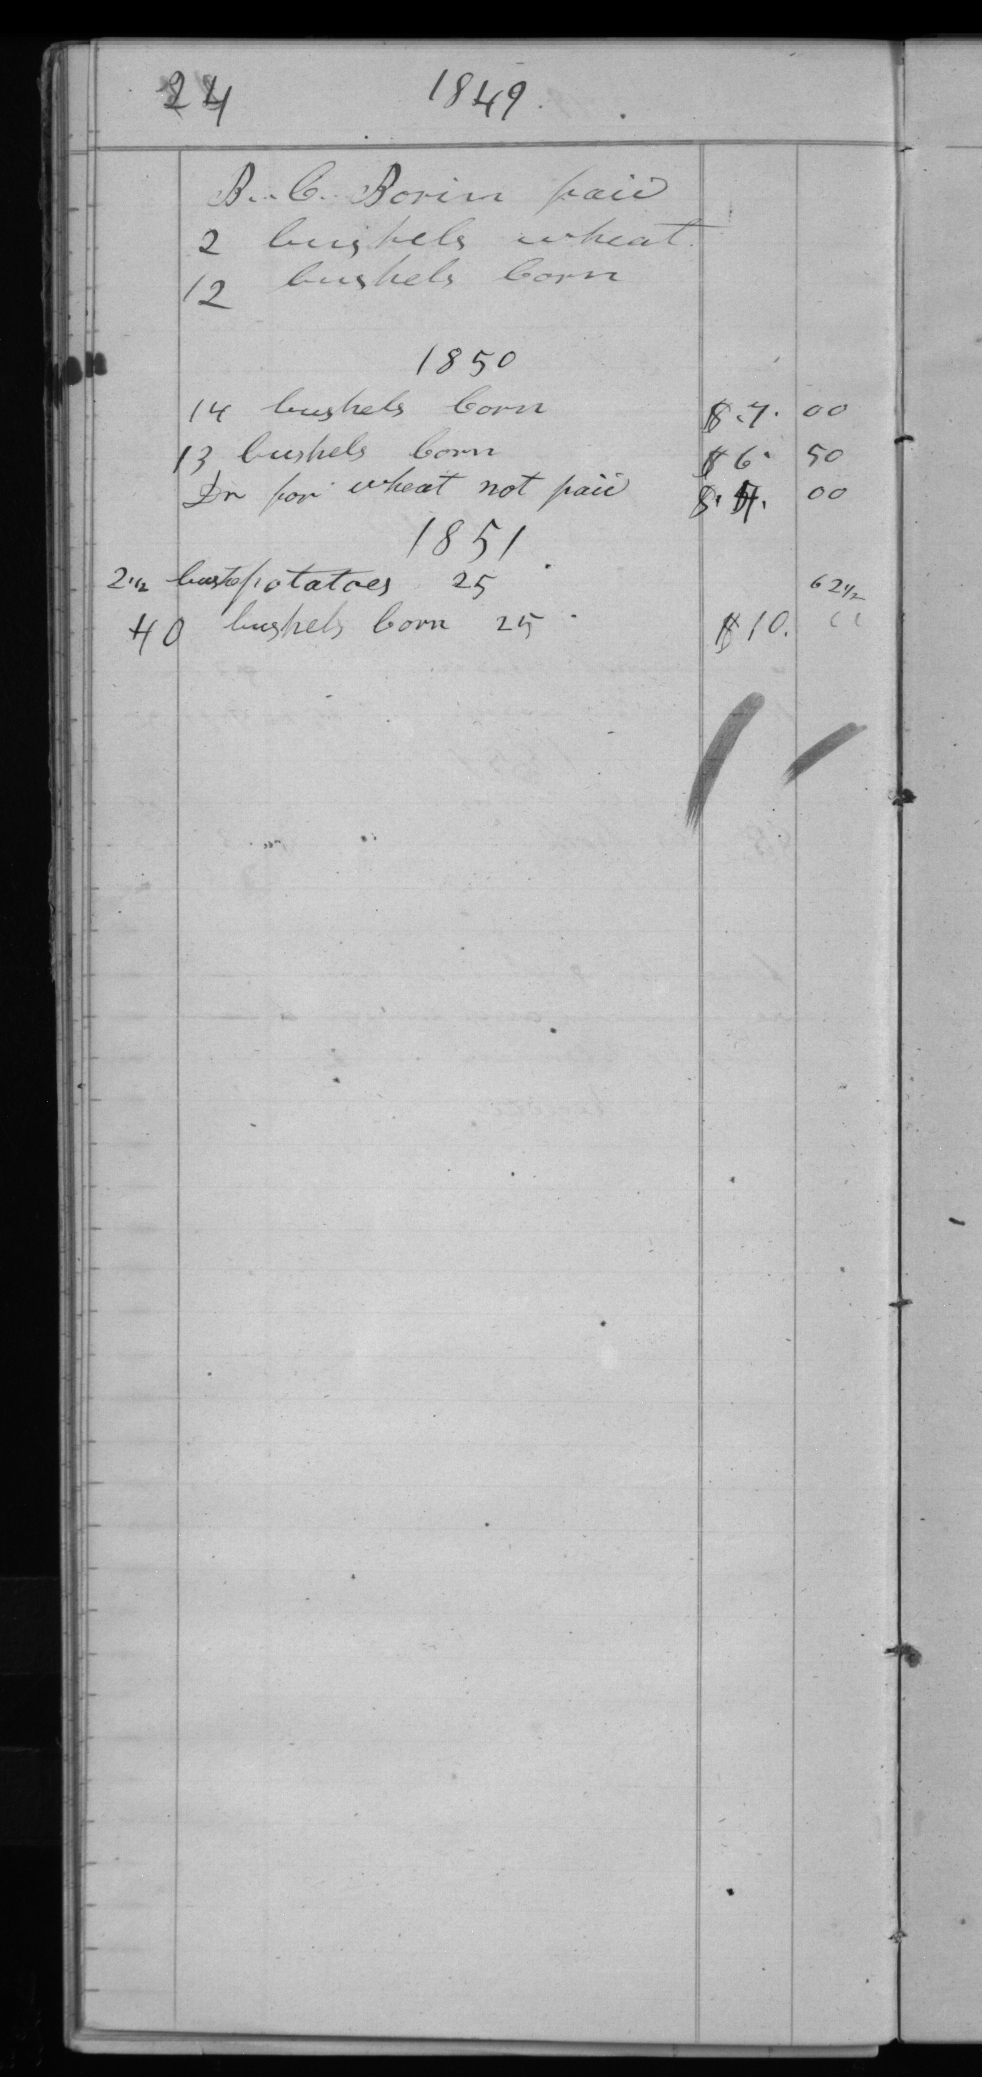 24 1849.
B. C. Borin paid
2 bushels wheat
12 bushels Corn
1850
14 bushels Corn $.7. 00
13 bushels Corn $6. 50
Dr for wheat not paid $.4. 00
1851
2 1/2 bush potatoes 25 62 1/2
40 bushels Corn 25 $10. "